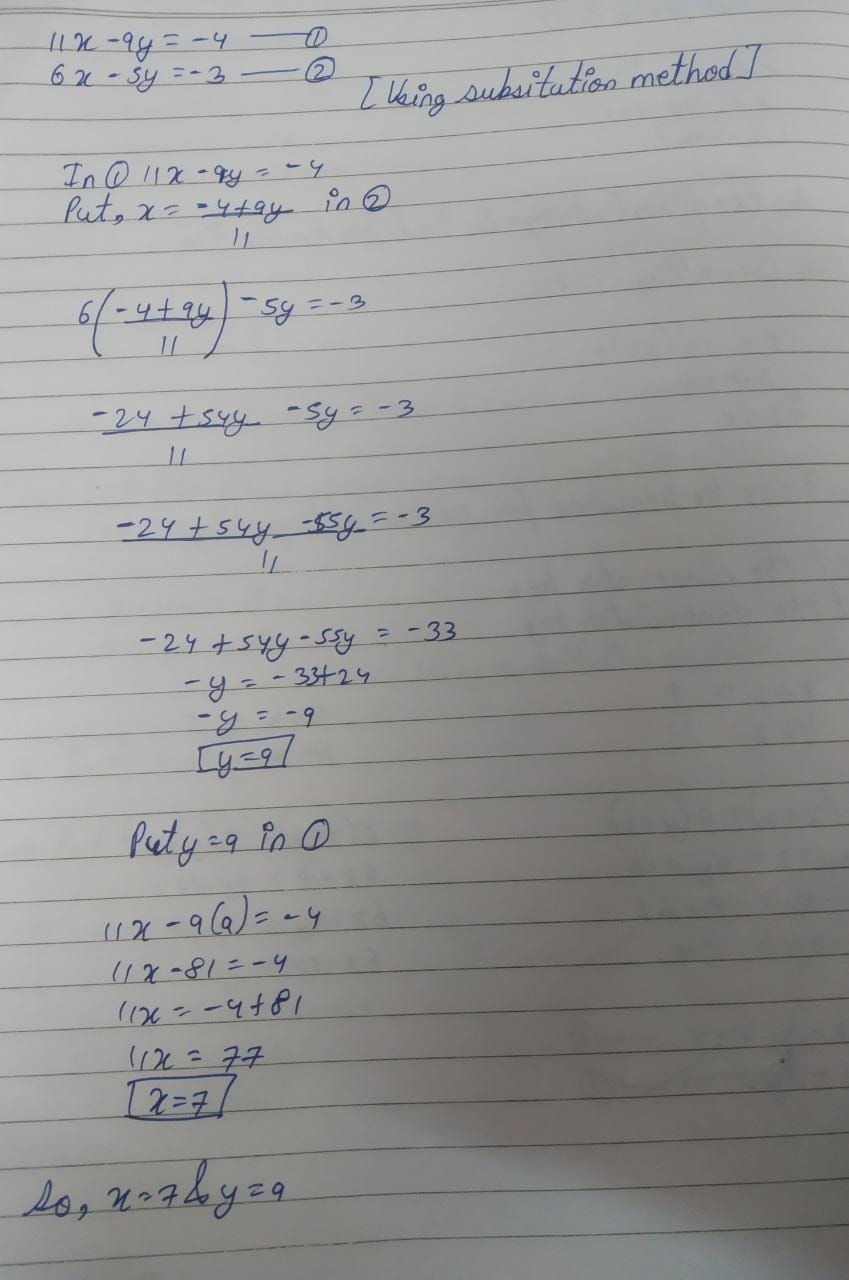 11x - 9y = -4 — ①
6x - 5y = -3 — ②
[Using subsitution method]
In ① 11x - 9y = -4
Put, x = -4+9y in ②
11
6(-4+9y) - 5y = -3
11
-24 + 54y - 5y = -3
11
-24 + 54y - 55y = -3
11
-24 + 54y - 55y = -33
-y = -33+24
-y = -9
y=9
Put y=9 in ①
11x - 9(9) = -4
11x - 81 = -4
11x = -4+81
11x = 77
x=7
So, x=7 & y=9